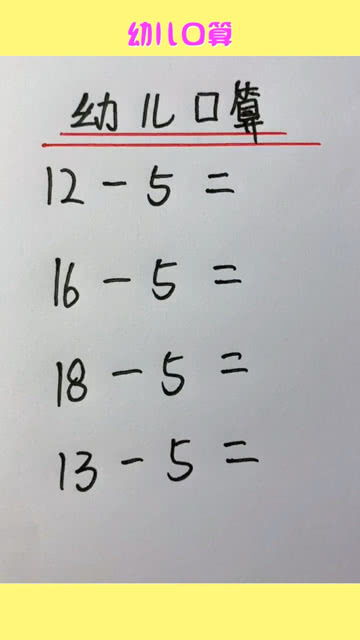 幼儿口算
幼儿口算
12 - 5 =
16 - 5 =
18 - 5 =
13 - 5 =